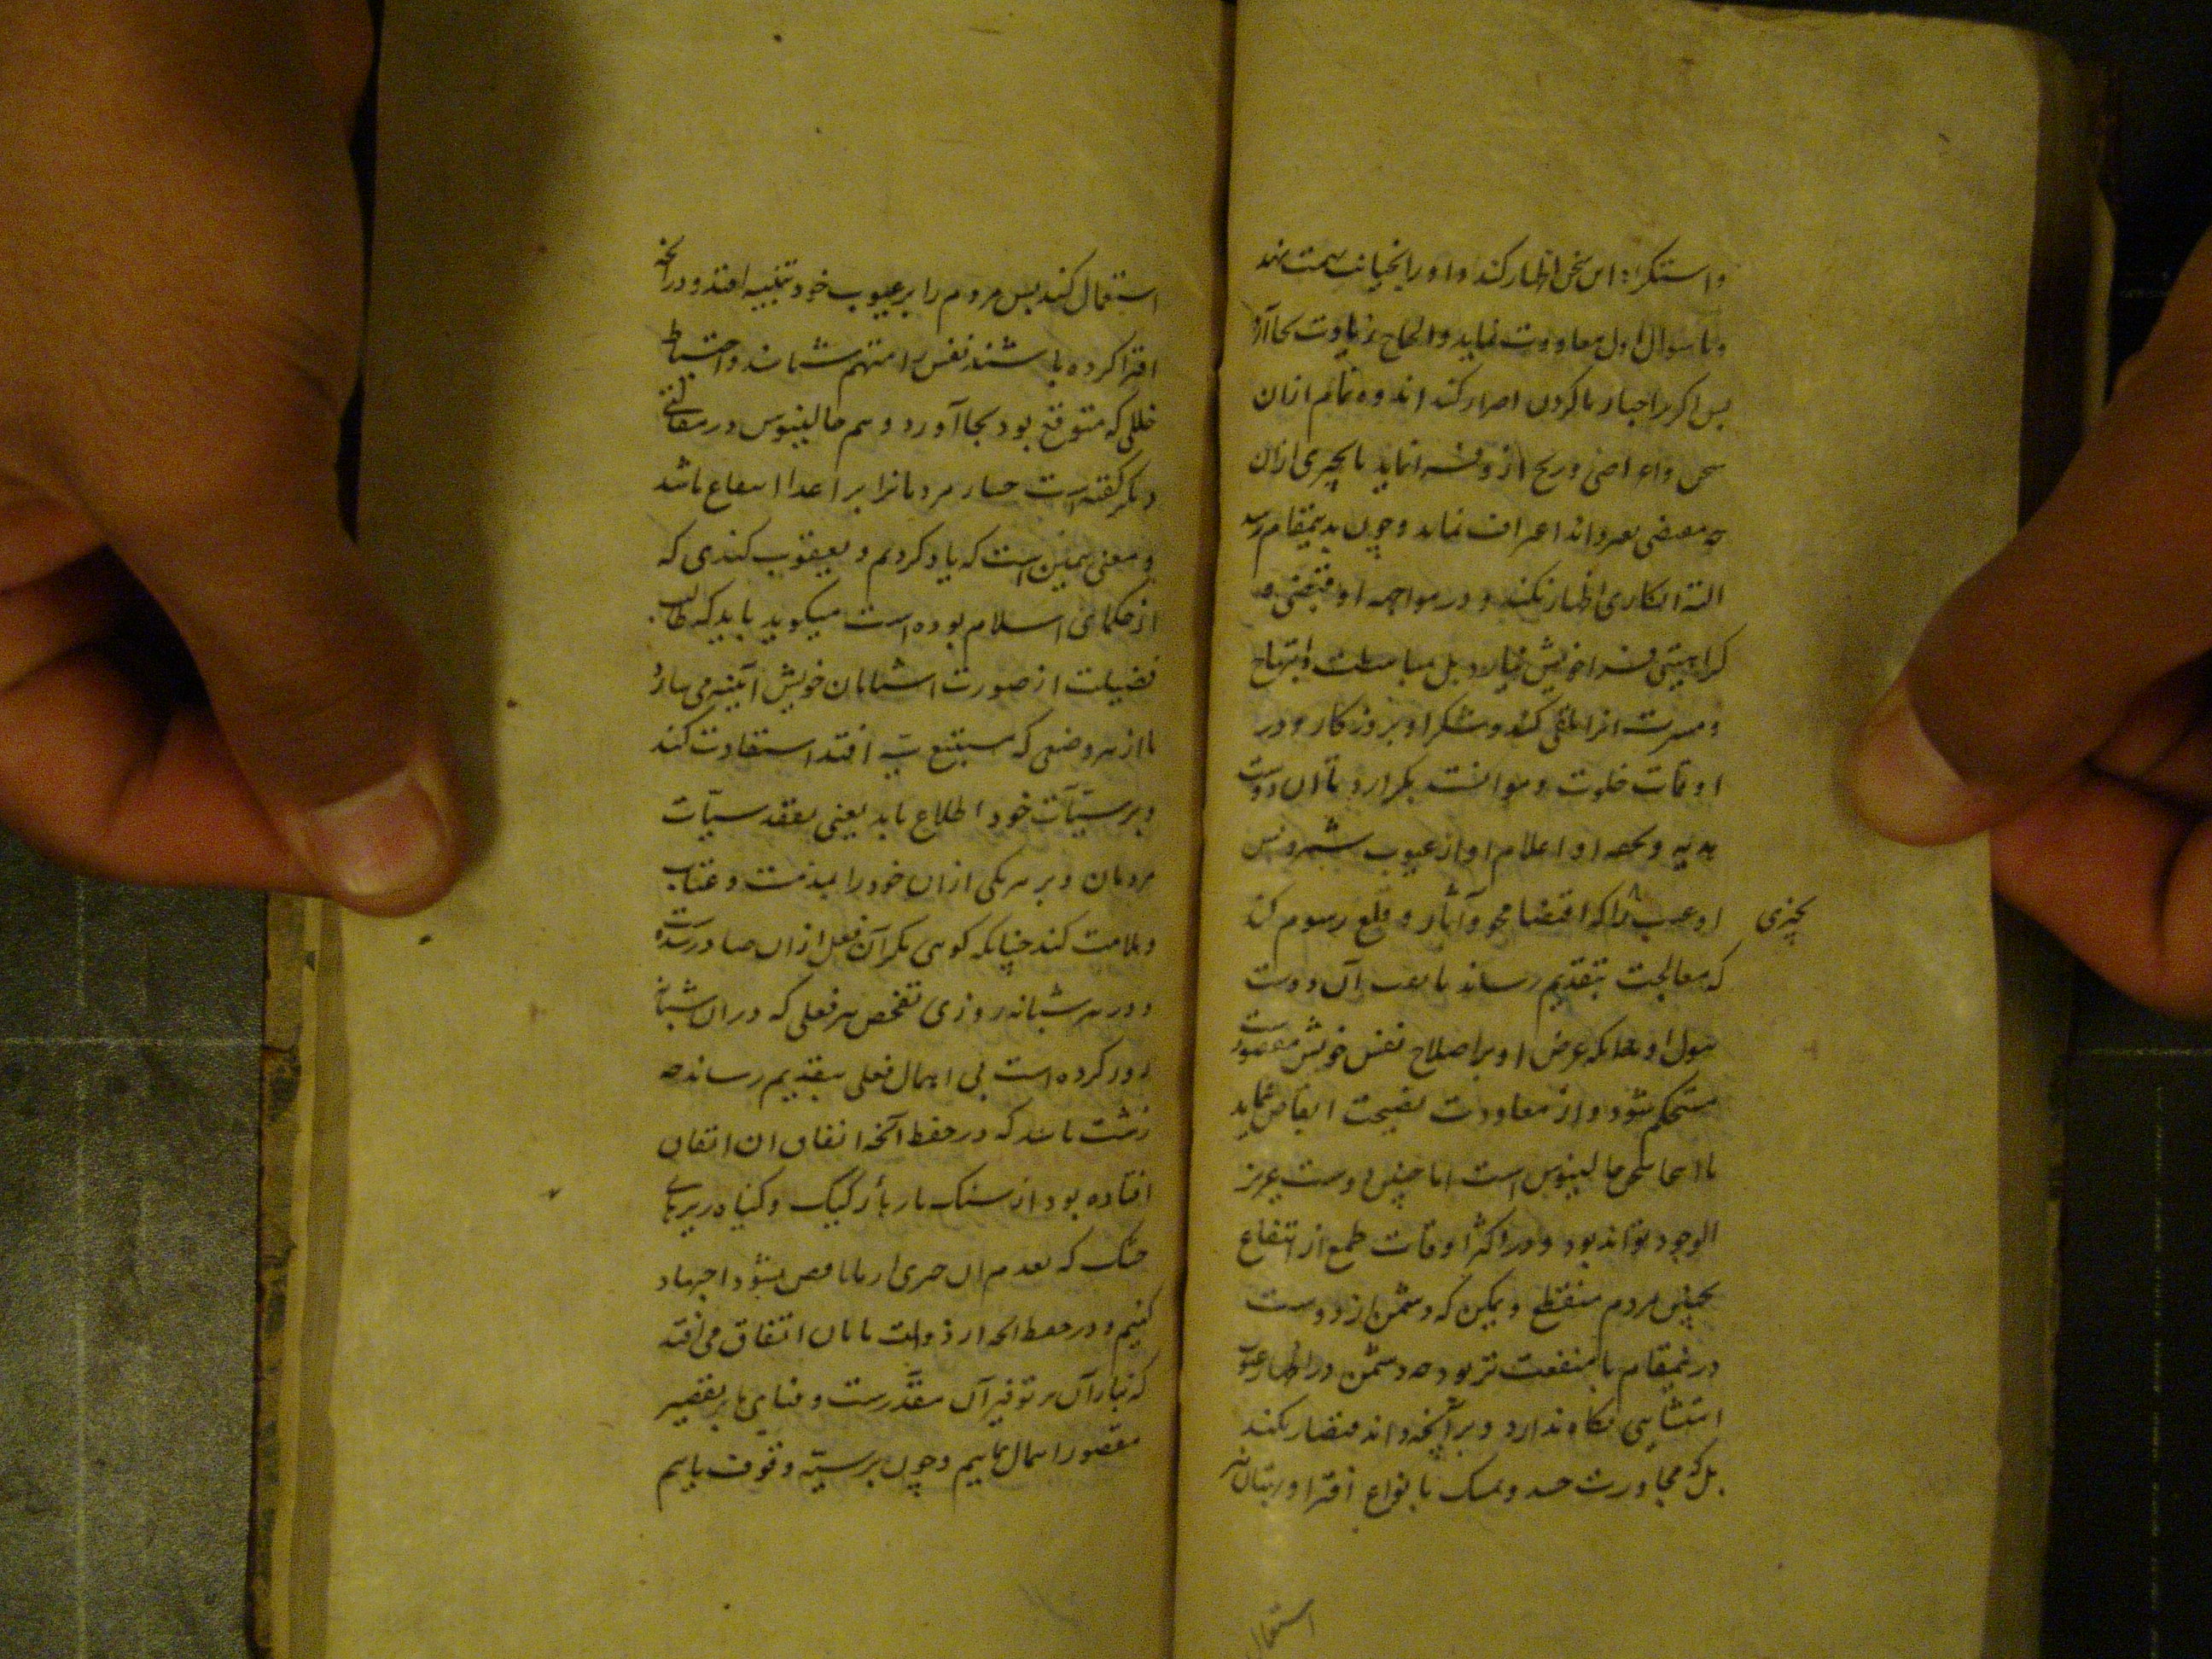 و استکراه این سخن اظهار کند و او را بخیانت تهمت نهد
و با سوال اول معاودت نماید و الحاح زیادت بجا آرد
پس اگر بر اخبار ناکردن اصرار کند اندوه تمام ازان
سخن و اعراضی صریح از و فرا نماید تا بچیزی ازان
چه مقتضی بعد داند اعتراف نماید و چون بدینمقام رسد
البته انکاری اظهار نکند و در مواجهه او قبضی و
کراهیتی فرا خویش نیارد بل مباسطت و ابتهاج
و مسرت انرا تلقی کند و شکر او بروزگار و در
اوقات خلوت و موانست بگزارد تا آن دوست
هدیه و تحفه او اعلام او از عیوب شمرد پس
او عیب را که اقتضا محو آثار و قلع رسوم کند
بچیزی
که معالجت بتقدیم رساند تا آن دوست
بقول او بدانکه غرض او بر اصلاح نفس خویش مقصورست
مستحکم شود و از معاودت نصیحت انقباض ننماید
تا اینجا سخن جالینوس است اما چنین دوست عزیز
الوجود تواند بود و در اکثر اوقات طمع از انتفاع
بچنین مردم منقطع و یمکن که دشمن از دوست
درینمقام با منفعت تر بود چه دشمن در اظهار عیوب
احتشامی نگاه ندارد و بر آنچه داند اقتصار نکند
بلکه مجاورت حد و تمسک بانواع افترا و بهتان نیز
استعمال
استعمال کند پس مردم را بر عیوب خود تنبیه افتد و در آنچه
افترا کرده باشند نفس را متهم شناسند و احتیاط
خللی که متوقع بود بجا آورد و هم جالینوس در مقالتی
دیگر گفته است خیار مردمانرا بر اعدا انتفاع باشد
و معنی همین است که یاد کردیم و یعیقوب کندی که
از حکمای اسلام بوده است میکوید باید که طالب
فضیلت از صورت اشنایان خویش آیینه می سازد
تا از هر وضعی که مستتبع سیئه افتد استفادت کند
و بر سیّآت خود اطلاع یابد یعنی تفقد سیآت
مردمان و بر هر یکی ازان خود را بمذمت و عتاب
و ملامت کند چنانکه کوئی مگر آن فعل ازان صادر شده
و در هر شبانه روزی تفحص هر فعلی که در ان شبانه
روز کرده است بی اهمال فعلی بتقدیم رساند چه
زشت باشد که در حفظ آنچه انفاق ان اتفاق
افتاده بود از سنک پارها رکیک و کیاه ریزهای
خشک که بعدم ان چیزی از ما ناقص نشود اجتهاد
کنیم و در حفظ انچه از ذوات ما بان اتفاق می افتد
که بقاء آن بر توفیر آن مقدّرست و فنای ما بر تقصیر
مقصور اهمال نماییم و چون بر سیّئه وقوف یابیم